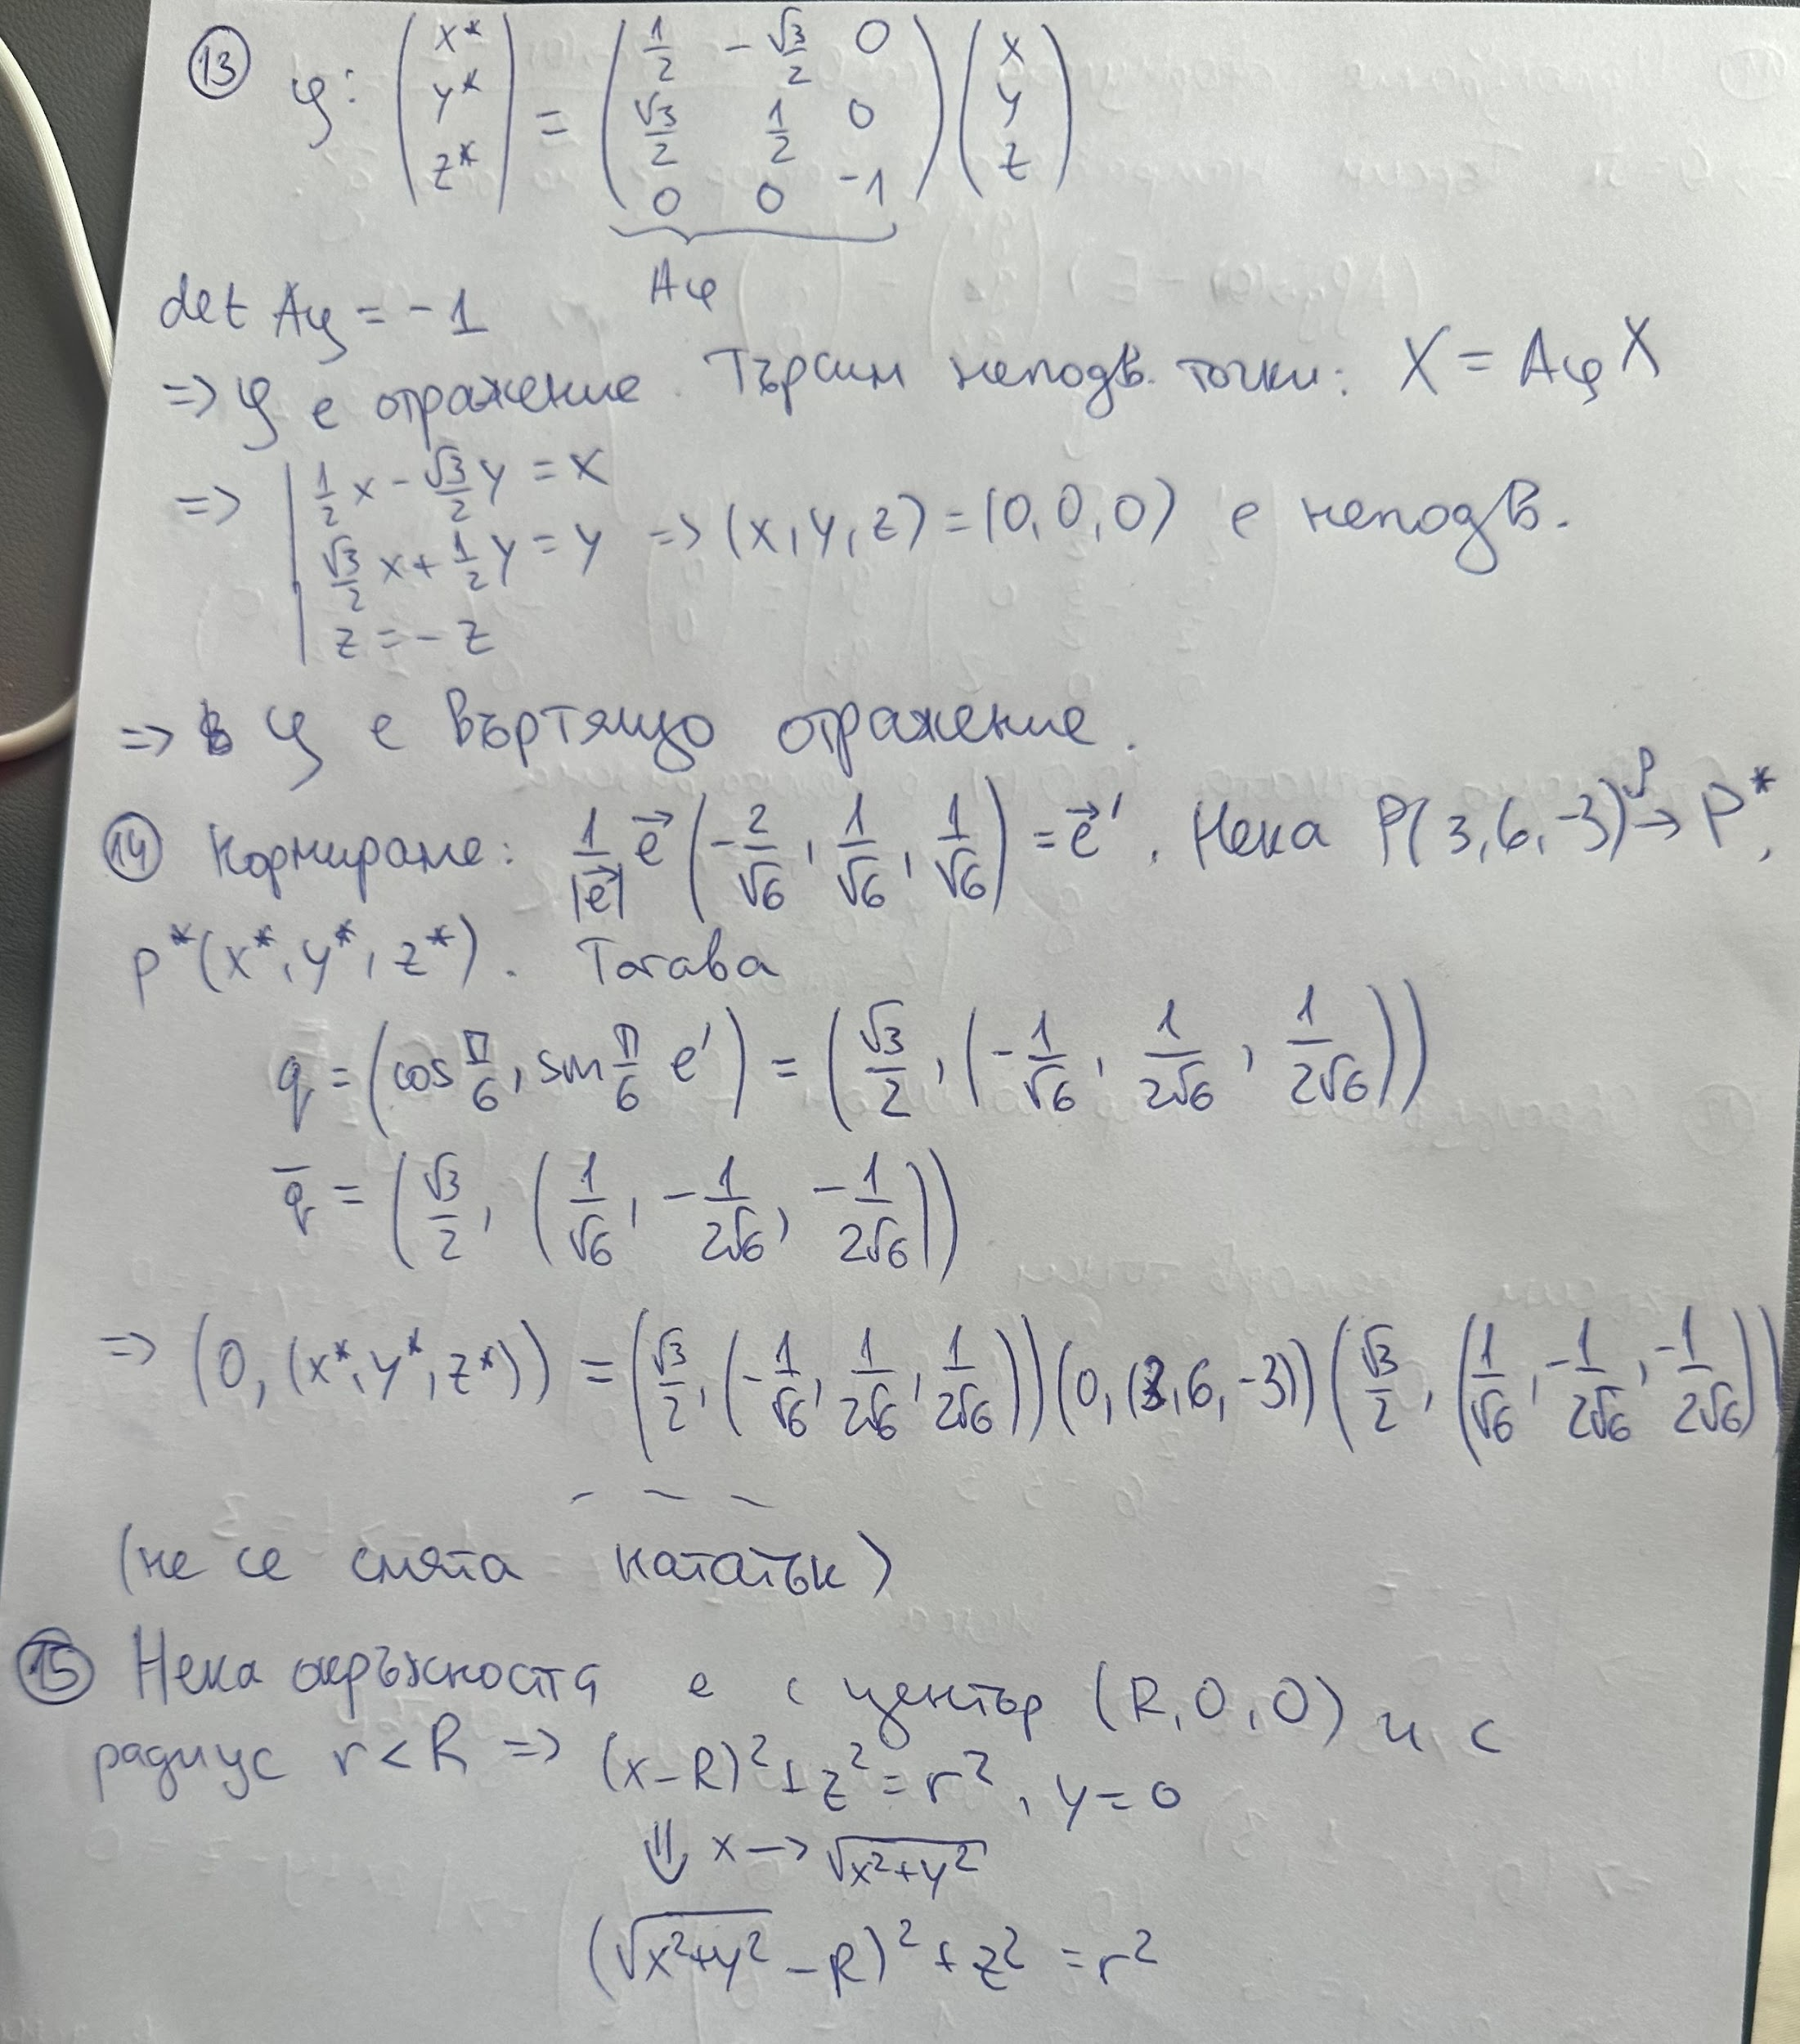 13 φ: (x* y* z*) = (1/2 -√3/2 0; √3/2 1/2 0; 0 0 -1) (x y z)
Aφ
det Aφ = -1
=> φ е отражение. Търсим неподв. точки: X = Aφ X
=> | 1/2 x - √3/2 y = x
√3/2 x + 1/2 y = y => (x, y, z) = (0, 0, 0) е неподв.
z = -z
=> φ е въртящо отражение.
14 Нормираме: 1/|e⃗| e⃗ (-2/√6, 1/√6, 1/√6) = e⃗'. Нека P(3, 6, -3) →ρ P*,
P*(x*, y*, z*). Тогава
q = (cos π/6, sin π/6 e') = (√3/2, (-1/√6, 1/2√6, 1/2√6))
q̅ = (√3/2, (1/√6, -1/2√6, -1/2√6))
=> (0, (x*, y*, z*)) = (√3/2, (-1/√6, 1/2√6, 1/2√6)) (0, (3, 6, -3)) (√3/2, (1/√6, -1/2√6, -1/2√6))
- - -
(не се смята нататък)
15 Нека окръжността е с център (R, 0, 0) и с
радиус r < R => (x-R)² + z² = r², y = 0
⇓ x → √x²+y²
(√x²+y² - R)² + z² = r²